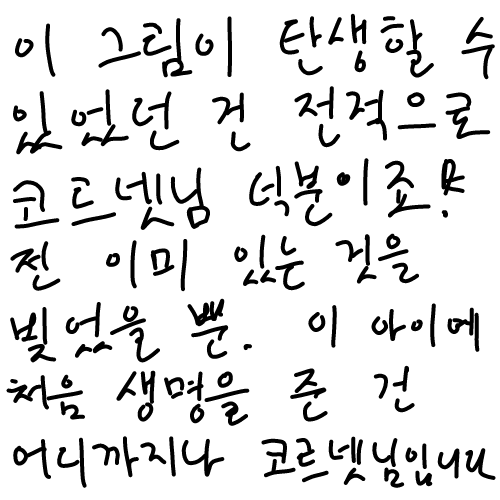 이 그림이 탄생할 수
있었던 건 전적으로
코르넷님 덕분이죠!
전 이미 있는 것을
빚었을 뿐. 이 아이에
처음 생명을 준 건
어디까지나 코르넷님입니다